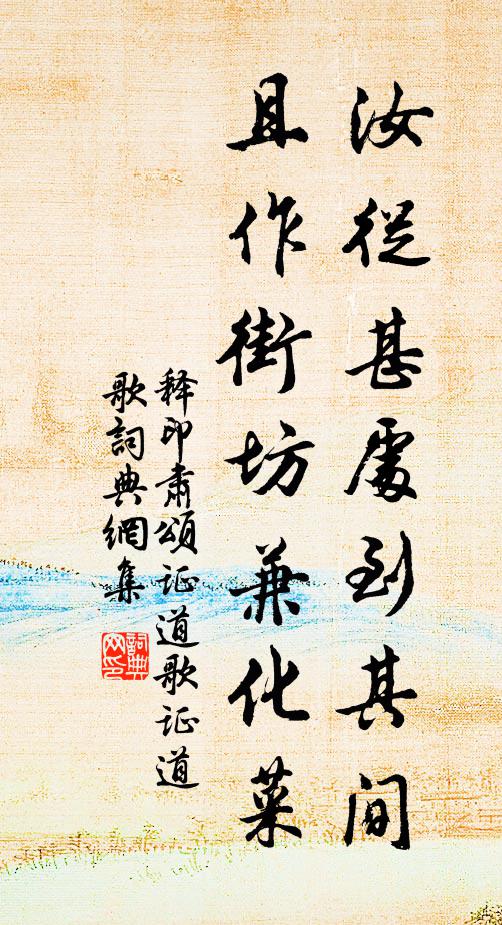 汝從甚處到其間
且作街坊兼化菜
释印肃頌证道歌证道
歌詞典網集
詞典网印